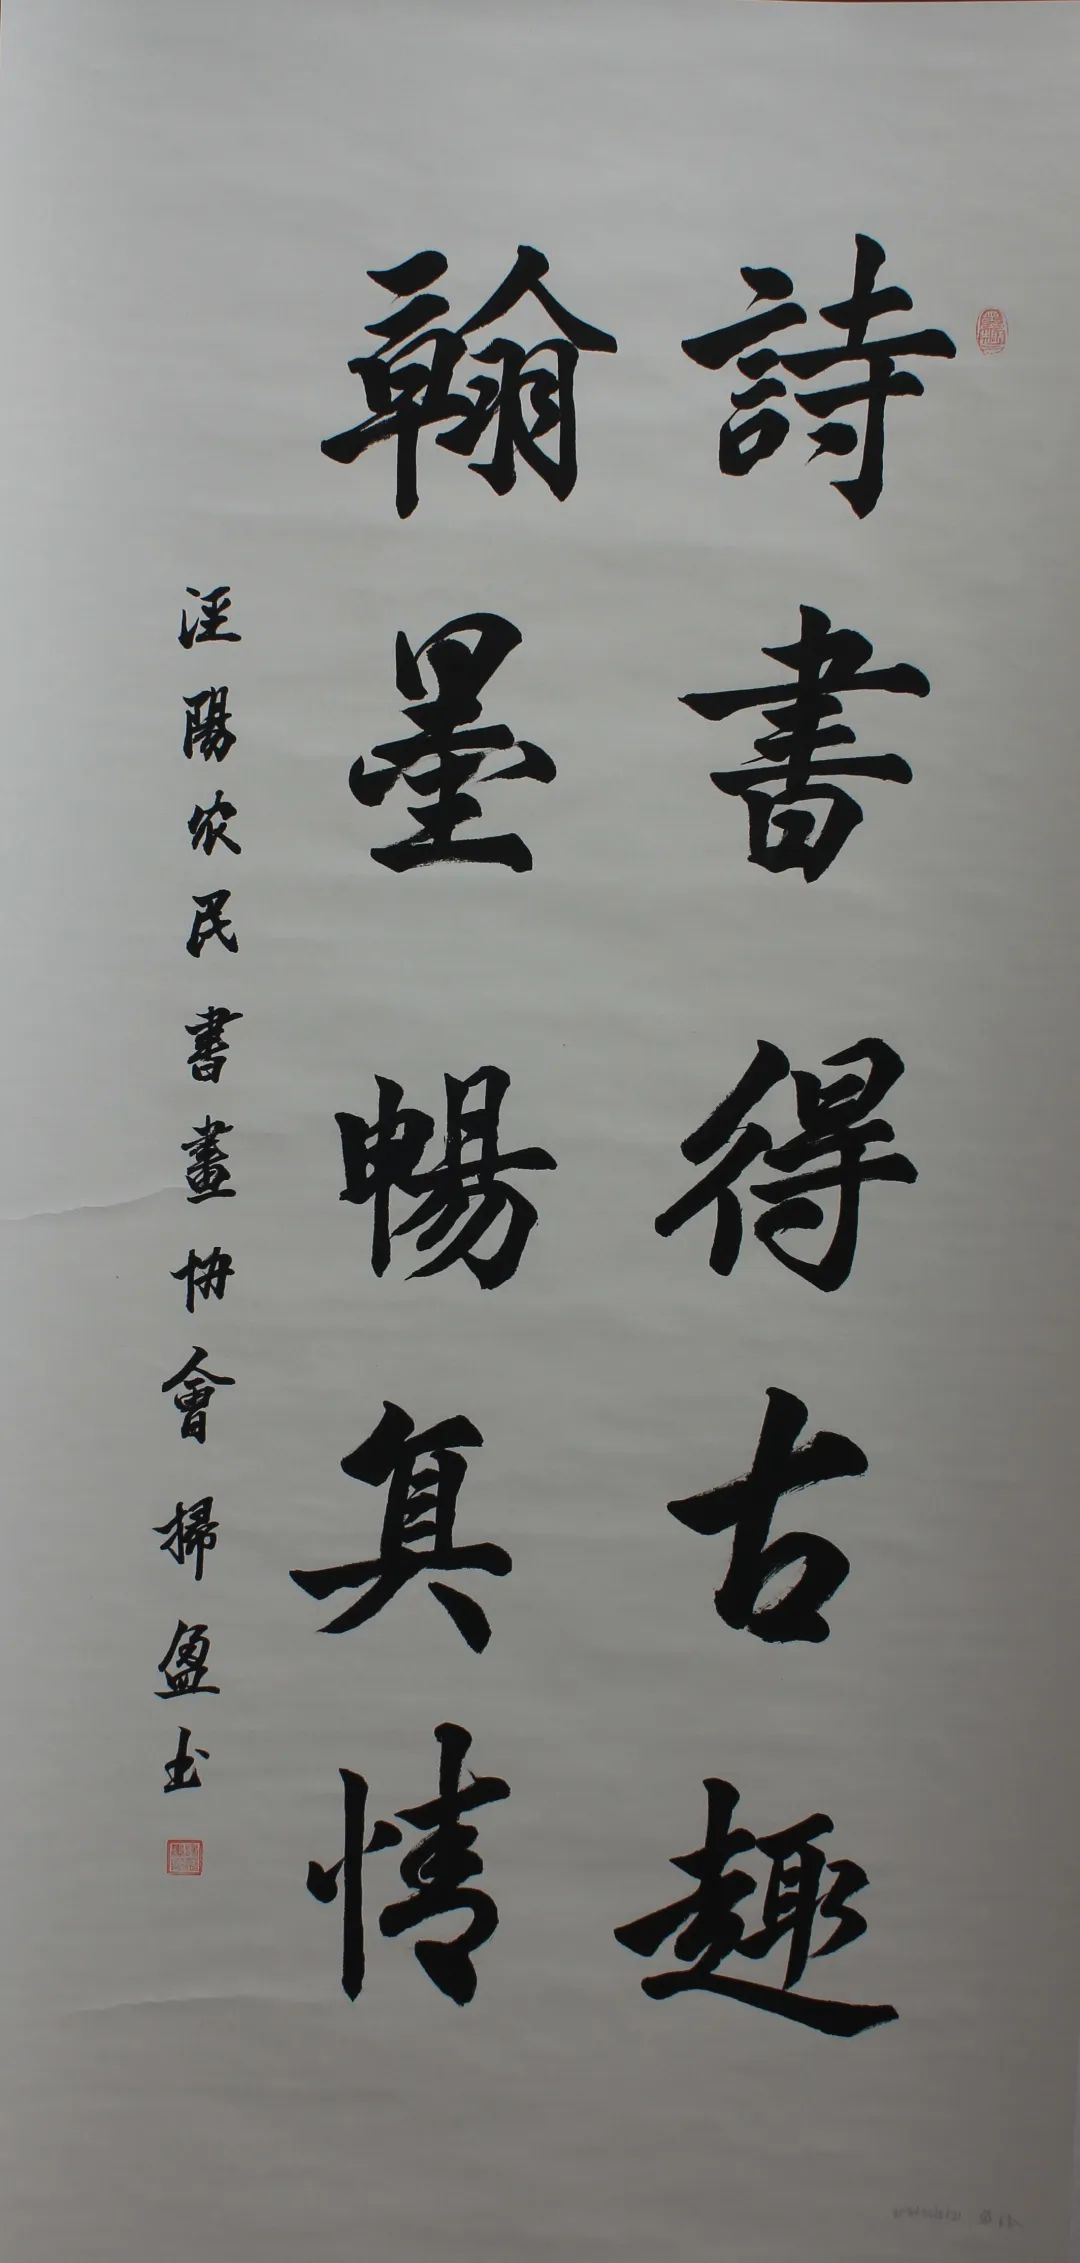 詩書得古趣
翰墨暢真情
泾陽农民書畫協會掃盈书